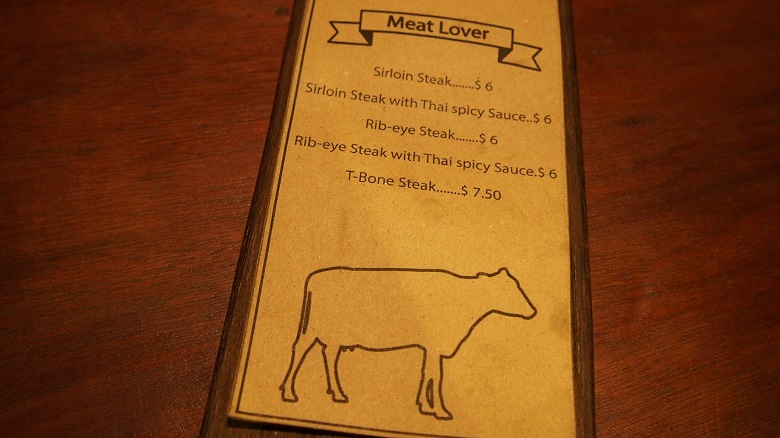 Meat Lover
Sirloin Steak.......$ 6
Sirloin Steak with Thai spicy Sauce..$ 6
Rib-eye Steak.......$ 6
Rib-eye Steak with Thai spicy Sauce.$ 6
T-Bone Steak.......$ 7.50